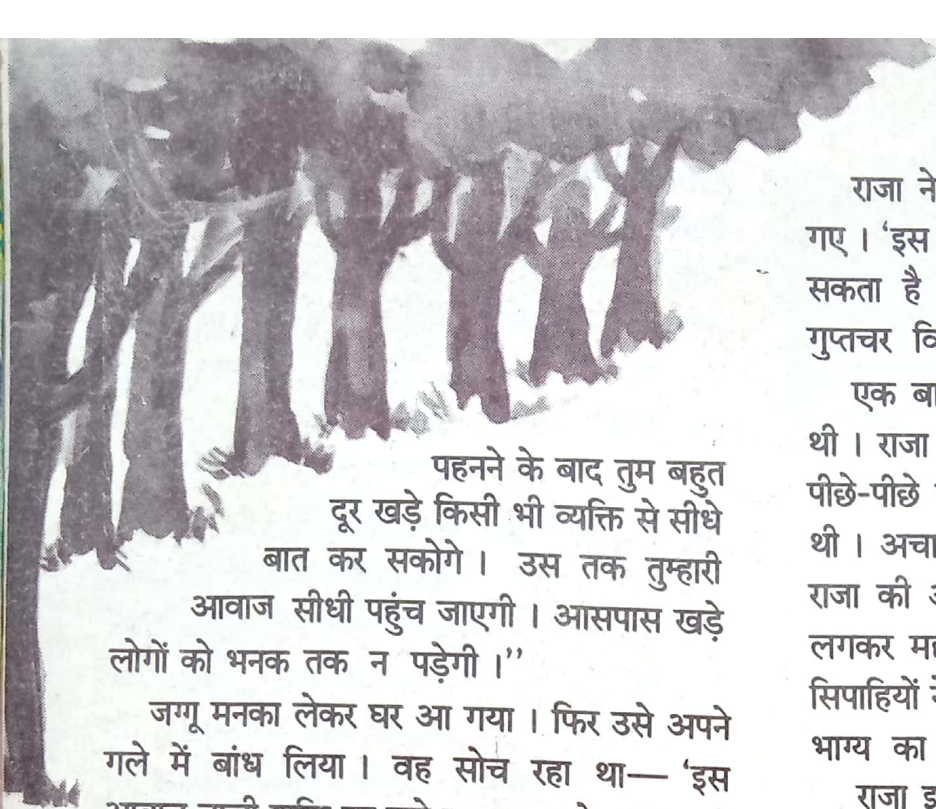 पहनने के बाद तुम बहुत
दूर खड़े किसी भी व्यक्ति से सीधे
बात कर सकोगे । उस तक तुम्हारी
आवाज सीधी पहुंच जाएगी । आसपास खड़े
लोगों को भनक तक न पड़ेगी ।”
जग्गू मनका लेकर घर आ गया । फिर उसे अपने
गले में बांध लिया । वह सोच रहा था— ‘इस
राजा ने
गए । ‘इस
सकता है
गुप्तचर
एक
थी । राजा
पीछे-पीछे
थी ।
राजा की
लगकर
सिपाहियों
भाग्य का
राजा